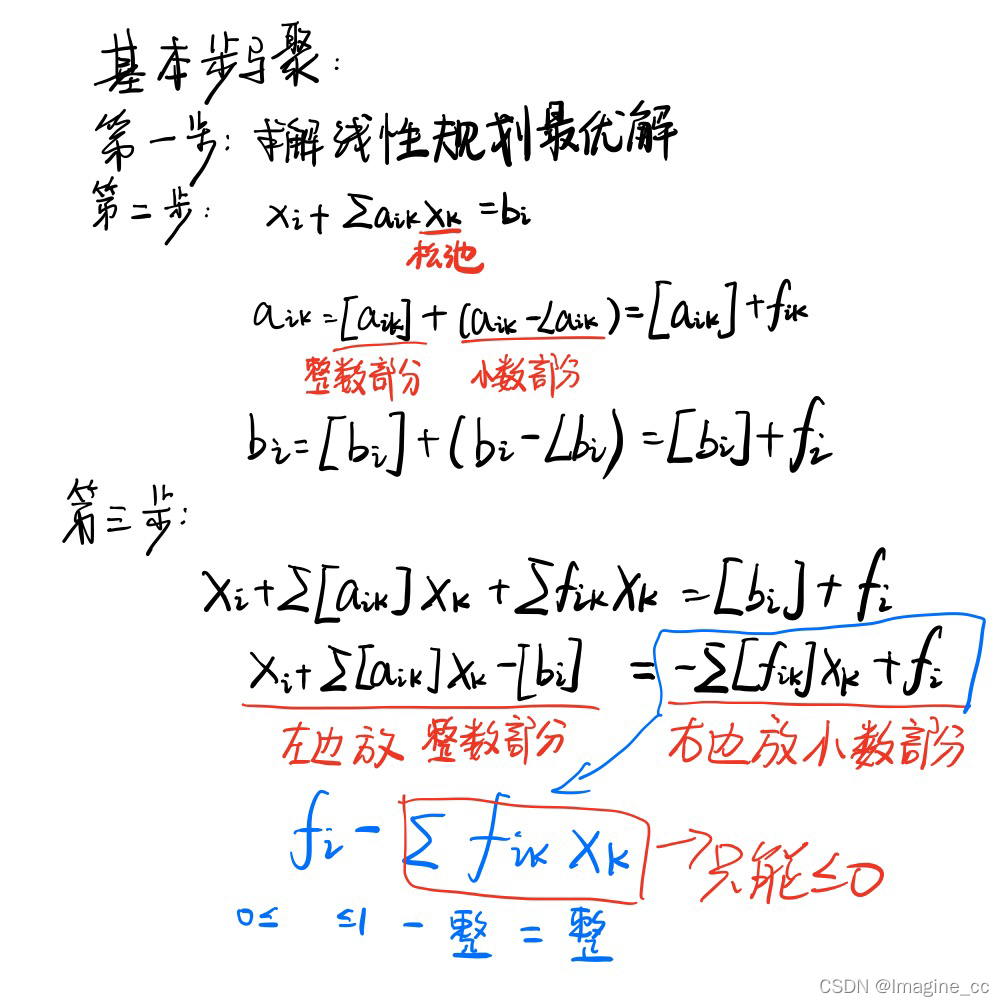 基本步骤:
第一步: 求解线性规划最优解
第二步: xi + ∑aik xk = bi
松弛
aik = [aik] + (aik - ⌊aik) = [aik] + fik
整数部分 小数部分
bi = [bi] + (bi - ⌊bi) = [bi] + fi
第三步:
xi + ∑[aik]xk + ∑fik xk = [bi] + fi
xi + ∑[aik]xk - [bi] = -∑[fik]xk + fi
左边放 整数部分 右边放小数部分
fi - ∑ fik xk → 只能≤0
0≤ ≤1 - 整 = 整
CSDN @Imagine_cc